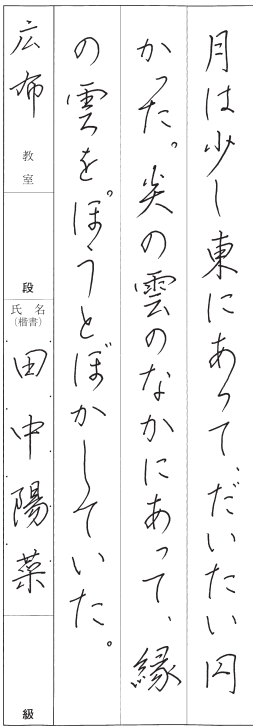 月は少し東にあって、だいたい円
かった。炎の雲のなかにあって、縁
の雲を。ぼうとぼかしていた。
広布 教室
段
氏名
(楷書)
田中陽菜
級